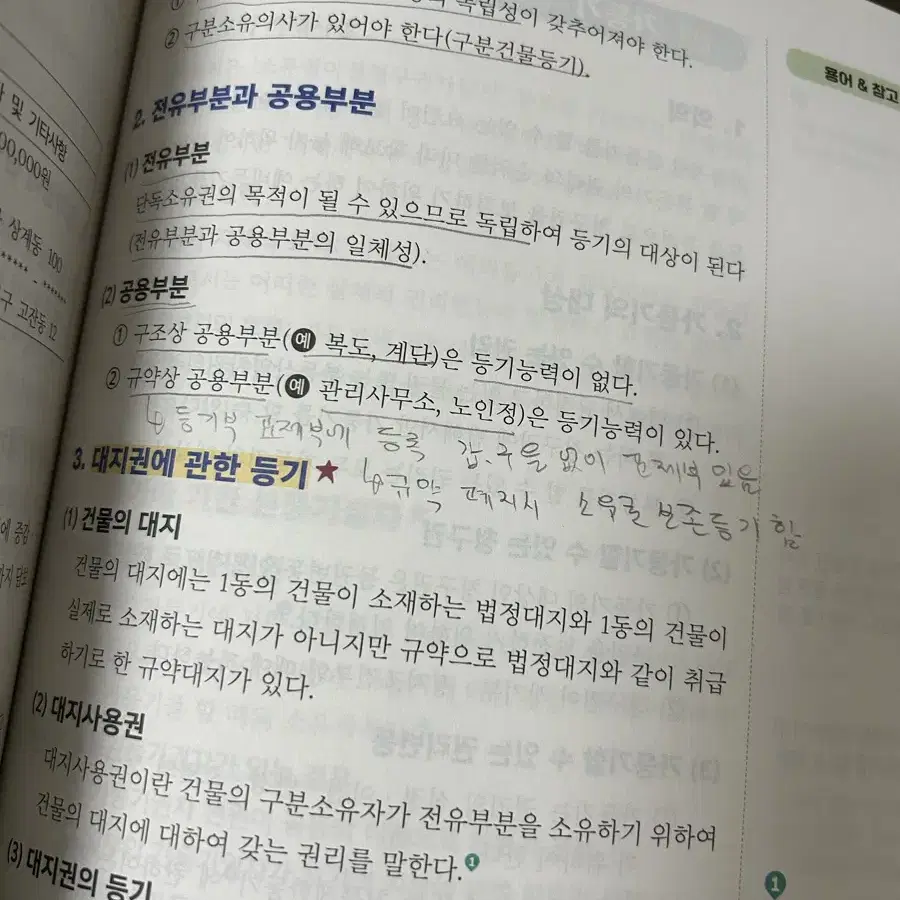 독립성이 갖추어져야 한다.
② 구분소유의사가 있어야 한다(구분건물등기).
2. 전유부분과 공용부분
(1) 전유부분
단독소유권의 목적이 될 수 있으므로 독립하여 등기의 대상이 된다
(전유부분과 공용부분의 일체성).
(2) 공용부분
① 구조상 공용부분(예 복도, 계단)은 등기능력이 없다.
② 규약상 공용부분(예 관리사무소, 노인정)은 등기능력이 있다.
↳ 등기부 표제부에 등록 갑.구을 없이 표제부 있음
↳ 규약 폐지시 소유권 보존등기 함
3. 대지권에 관한 등기 ★
(1) 건물의 대지
건물의 대지에는 1동의 건물이 소재하는 법정대지와 1동의 건물이
실제로 소재하는 대지가 아니지만 규약으로 법정대지와 같이 취급
하기로 한 규약대지가 있다.
(2) 대지사용권
대지사용권이란 건물의 구분소유자가 전유부분을 소유하기 위하여
건물의 대지에 대하여 갖는 권리를 말한다.1
(3) 대지권의 등기
용어 & 참고
1
및 기타사항
00,000원
상계동 100
*****-*******
구 고잔동 12
에 증감